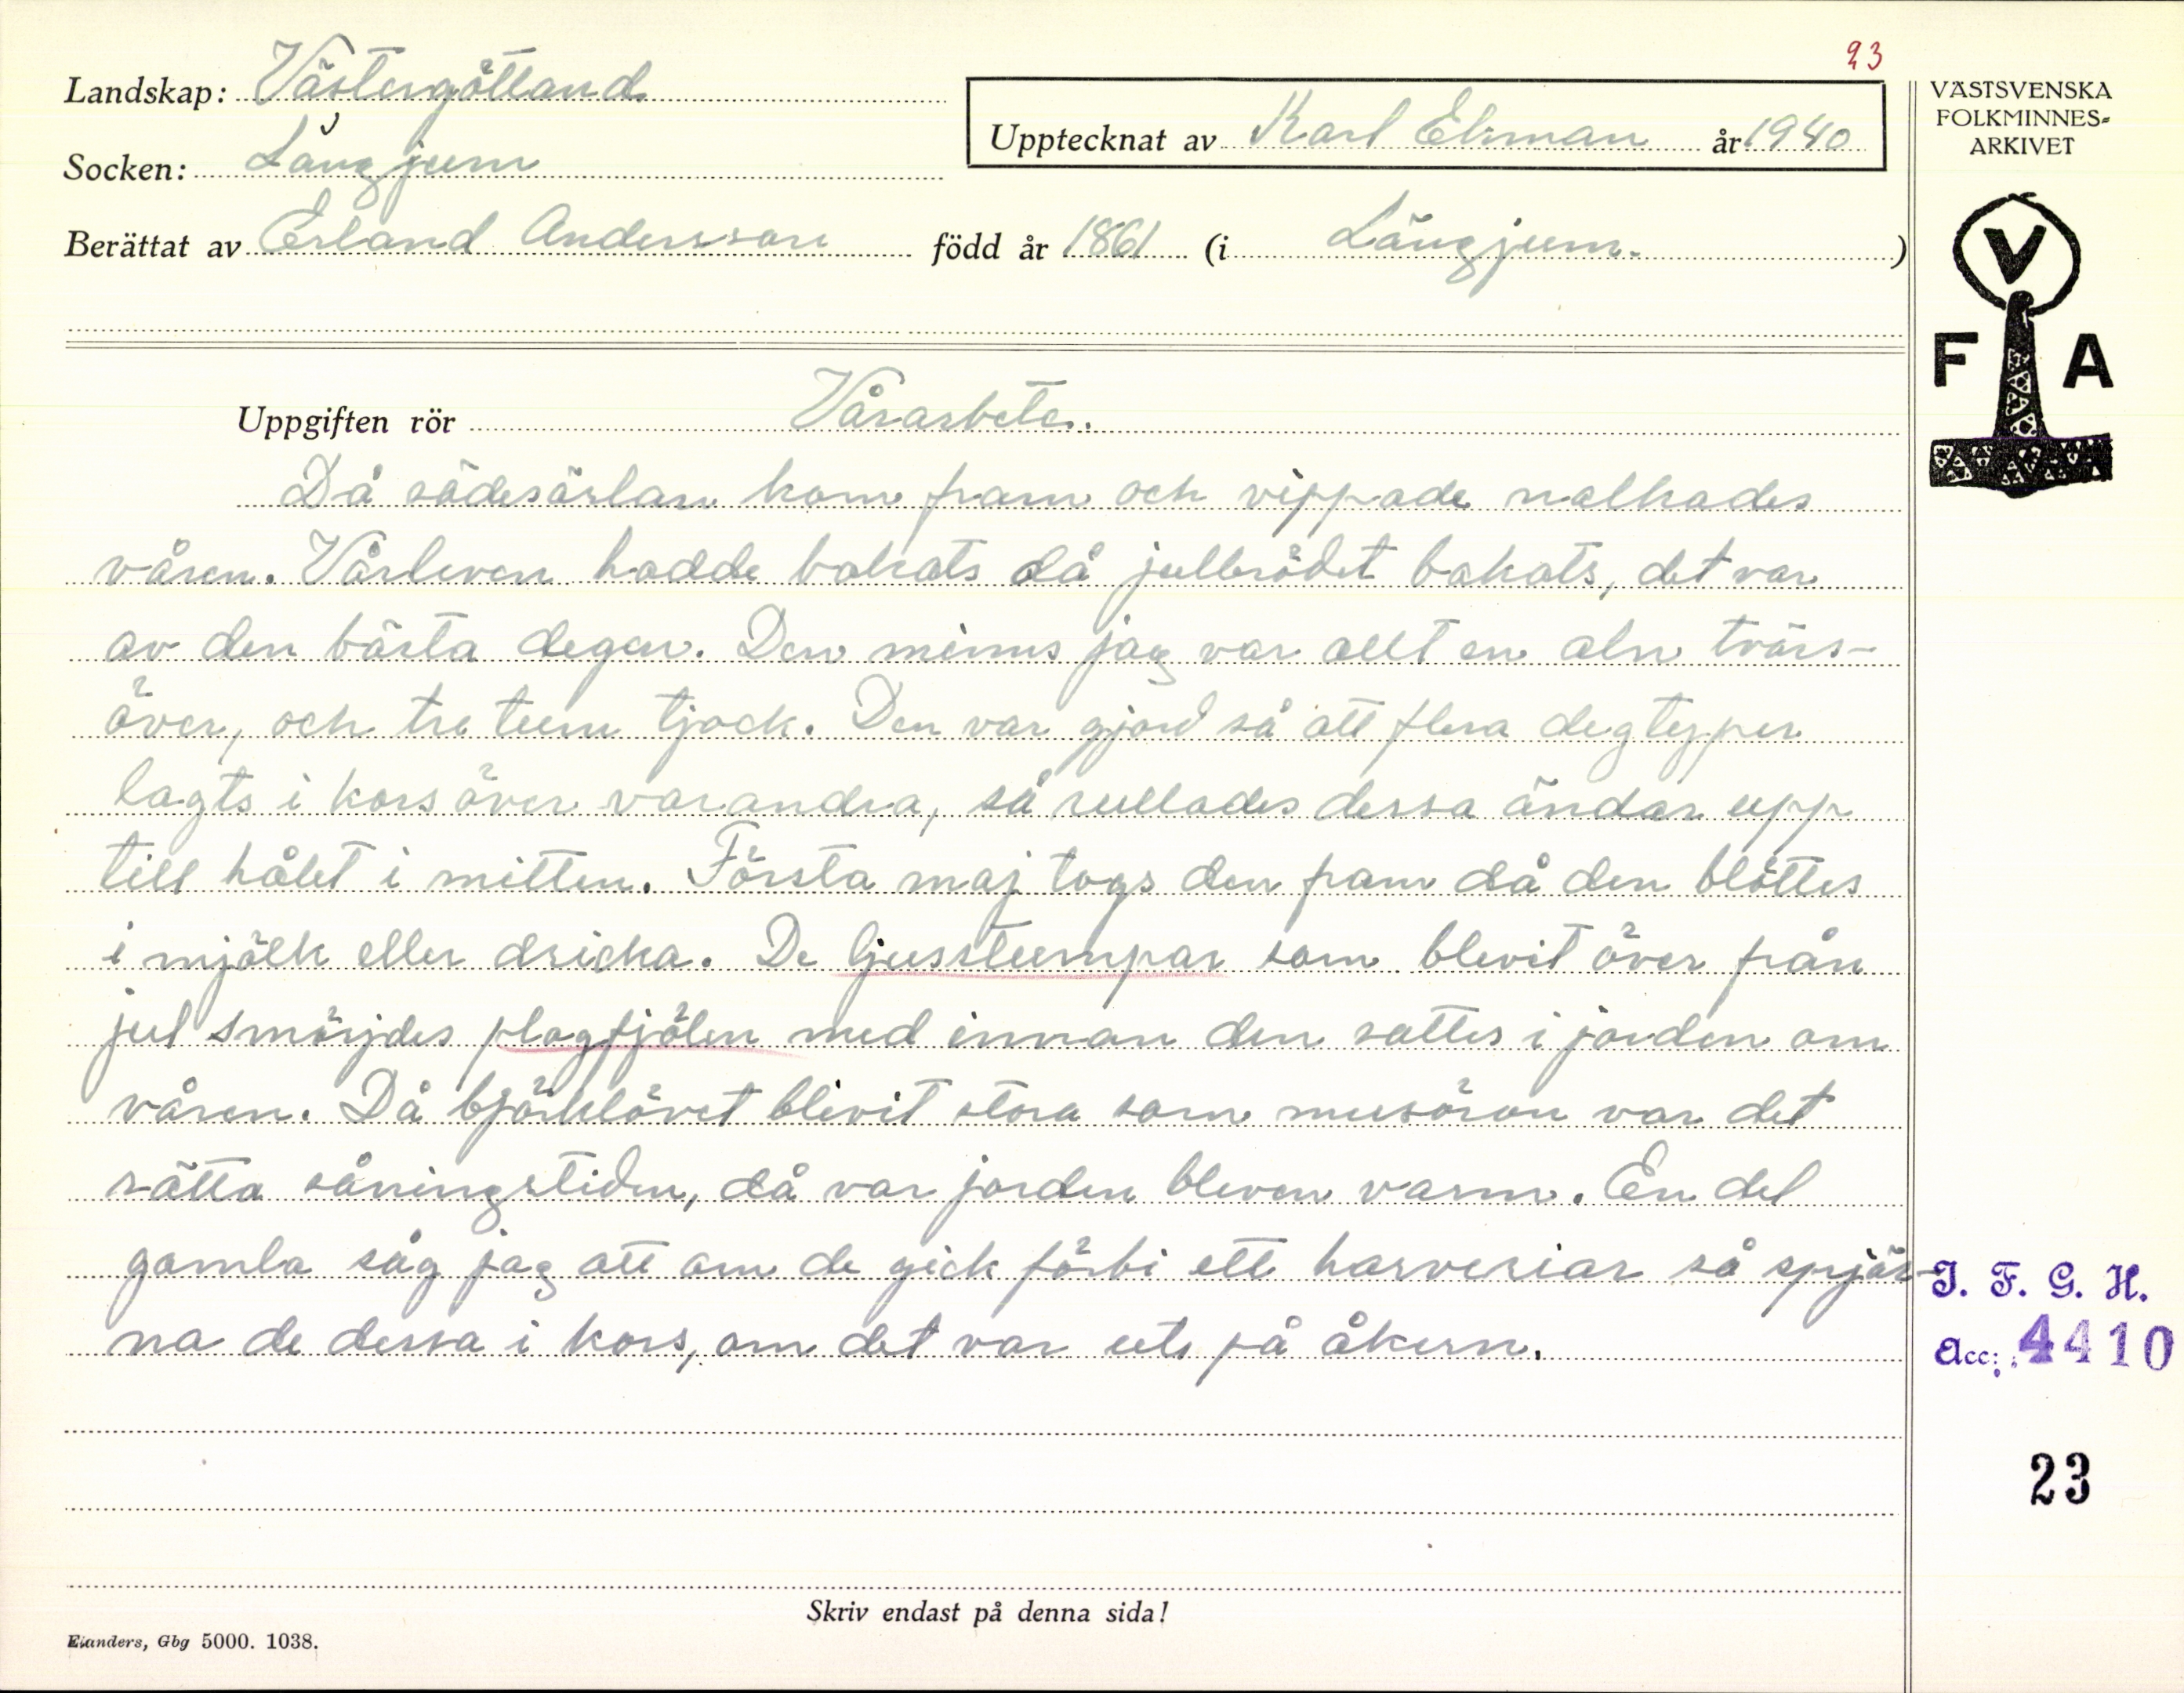 23
Landskap: Västergötland
Upptecknat av Karl Ekman år 1940
VÄSTSVENSKA
FOLKMINNES-
ARKIVET
Socken: Långjum
Berättat av Erland Andersson född år 1861 (i Långjum.)
V
F A
Uppgiften rör Vårarbete.
Då sädesärlan kom fram och vippade nalkades
våren. Vårleven hadde bakats då julbrödet bakats, det var
av den bästa degen. Den minns jag var allt en aln tvärs-
över, och tre tum tjock. Den var gjord så att flera degtyper
lagts i kors över varandra, så rullades dessa ändar upp
till hålet i mitten. Första maj togs den fram då den blöttes
i mjölk eller dricka. De ljusstumpar som blevit över från
jul smörjdes plogfjölen med innan den sattes i jorden om
våren. Då björklövet blivit stora som musöron var det
rätta såningstiden, då var jorden bleven varm. En del
gamla såg jag att om de gick förbi ett harveriar så spjär-
na de dessa i kors, om det var ute på åkern.
I. F. G. H.
Acc: 4410
23
Skriv endast på denna sida!
Elanders, Gbg 5000. 1038.